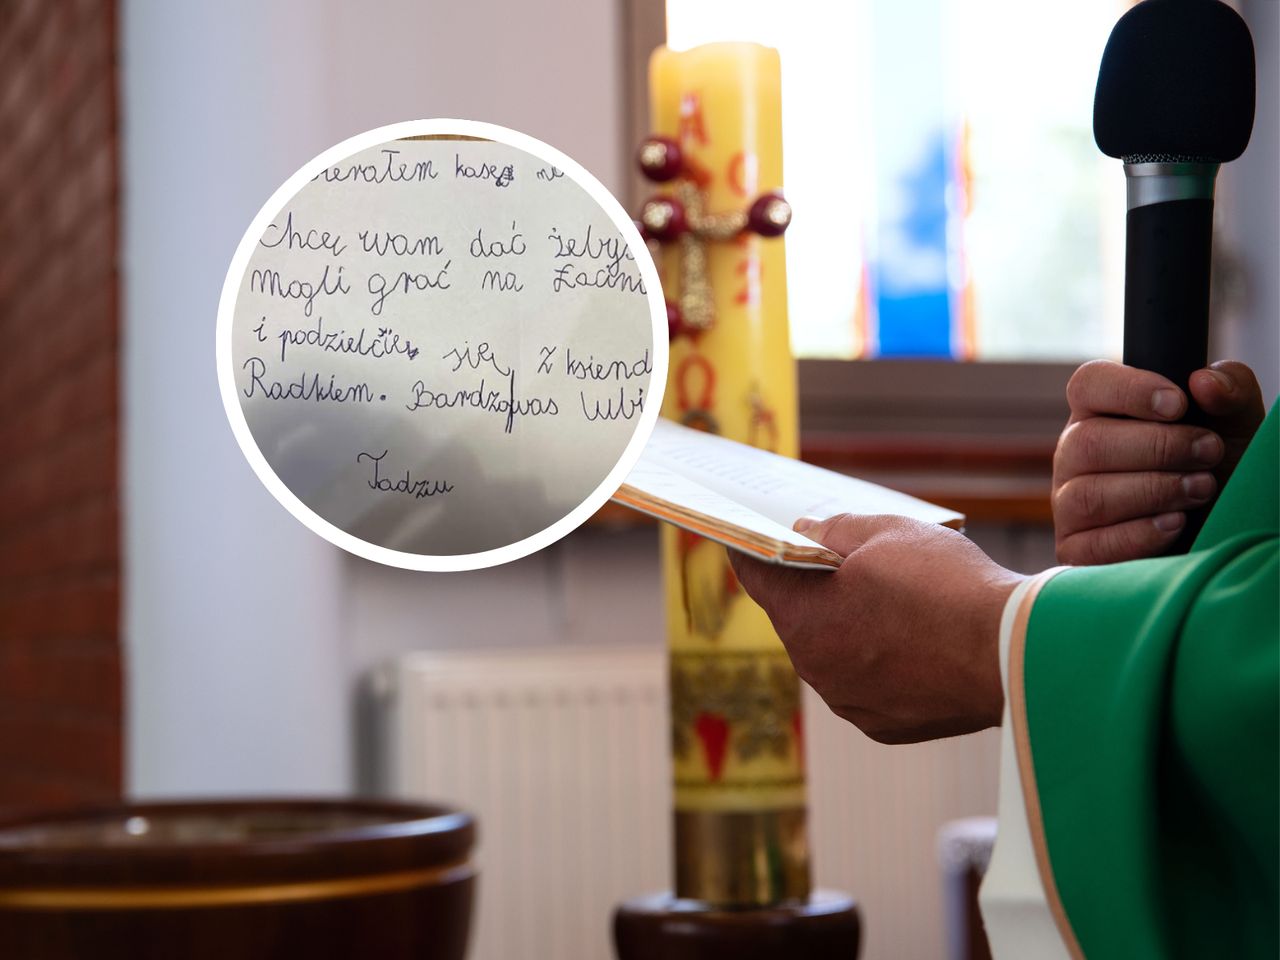 ierałem kasę
Chcę wam dać żebyś
mogli grać na Łacini
i podzielcie się z ksiend
Radkiem. Bardzo was lubi
Tadziu
A
Ω